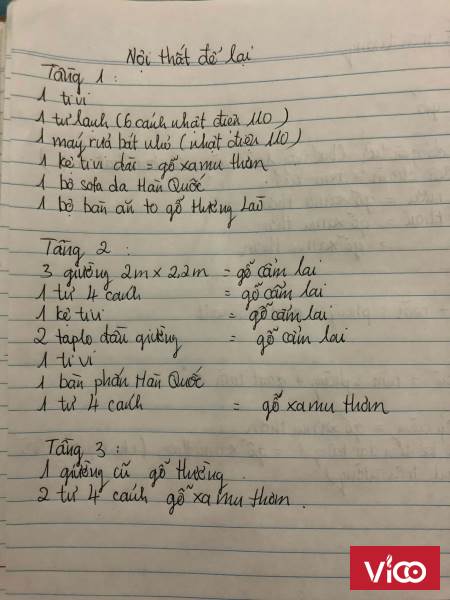 Nội thất để lại
Tầng 1 :
1 ti vi
1 tủ lạnh (6 cánh nhật điện 110)
1 máy rửa bát nhỏ (nhật điện 110)
1 kệ ti vi dài = gỗ xa mu thơm
1 bộ sofa da Hàn Quốc
1 bộ bàn ăn to gỗ Hương Lào
Tầng 2 :
3 giường 2m x 2,2m = gỗ cẩm lai
1 tủ 4 cánh = gỗ cẩm lai
1 kệ tivi = gỗ cẩm lai
2 taplo đầu giường = gỗ cẩm lai
1 ti vi
1 bàn phấn Hàn Quốc
1 tủ 4 cánh = gỗ xa mu thơm
Tầng 3 :
1 giường cũ gỗ thường
2 tủ 4 cánh gỗ xa mu thơm .
ViCO